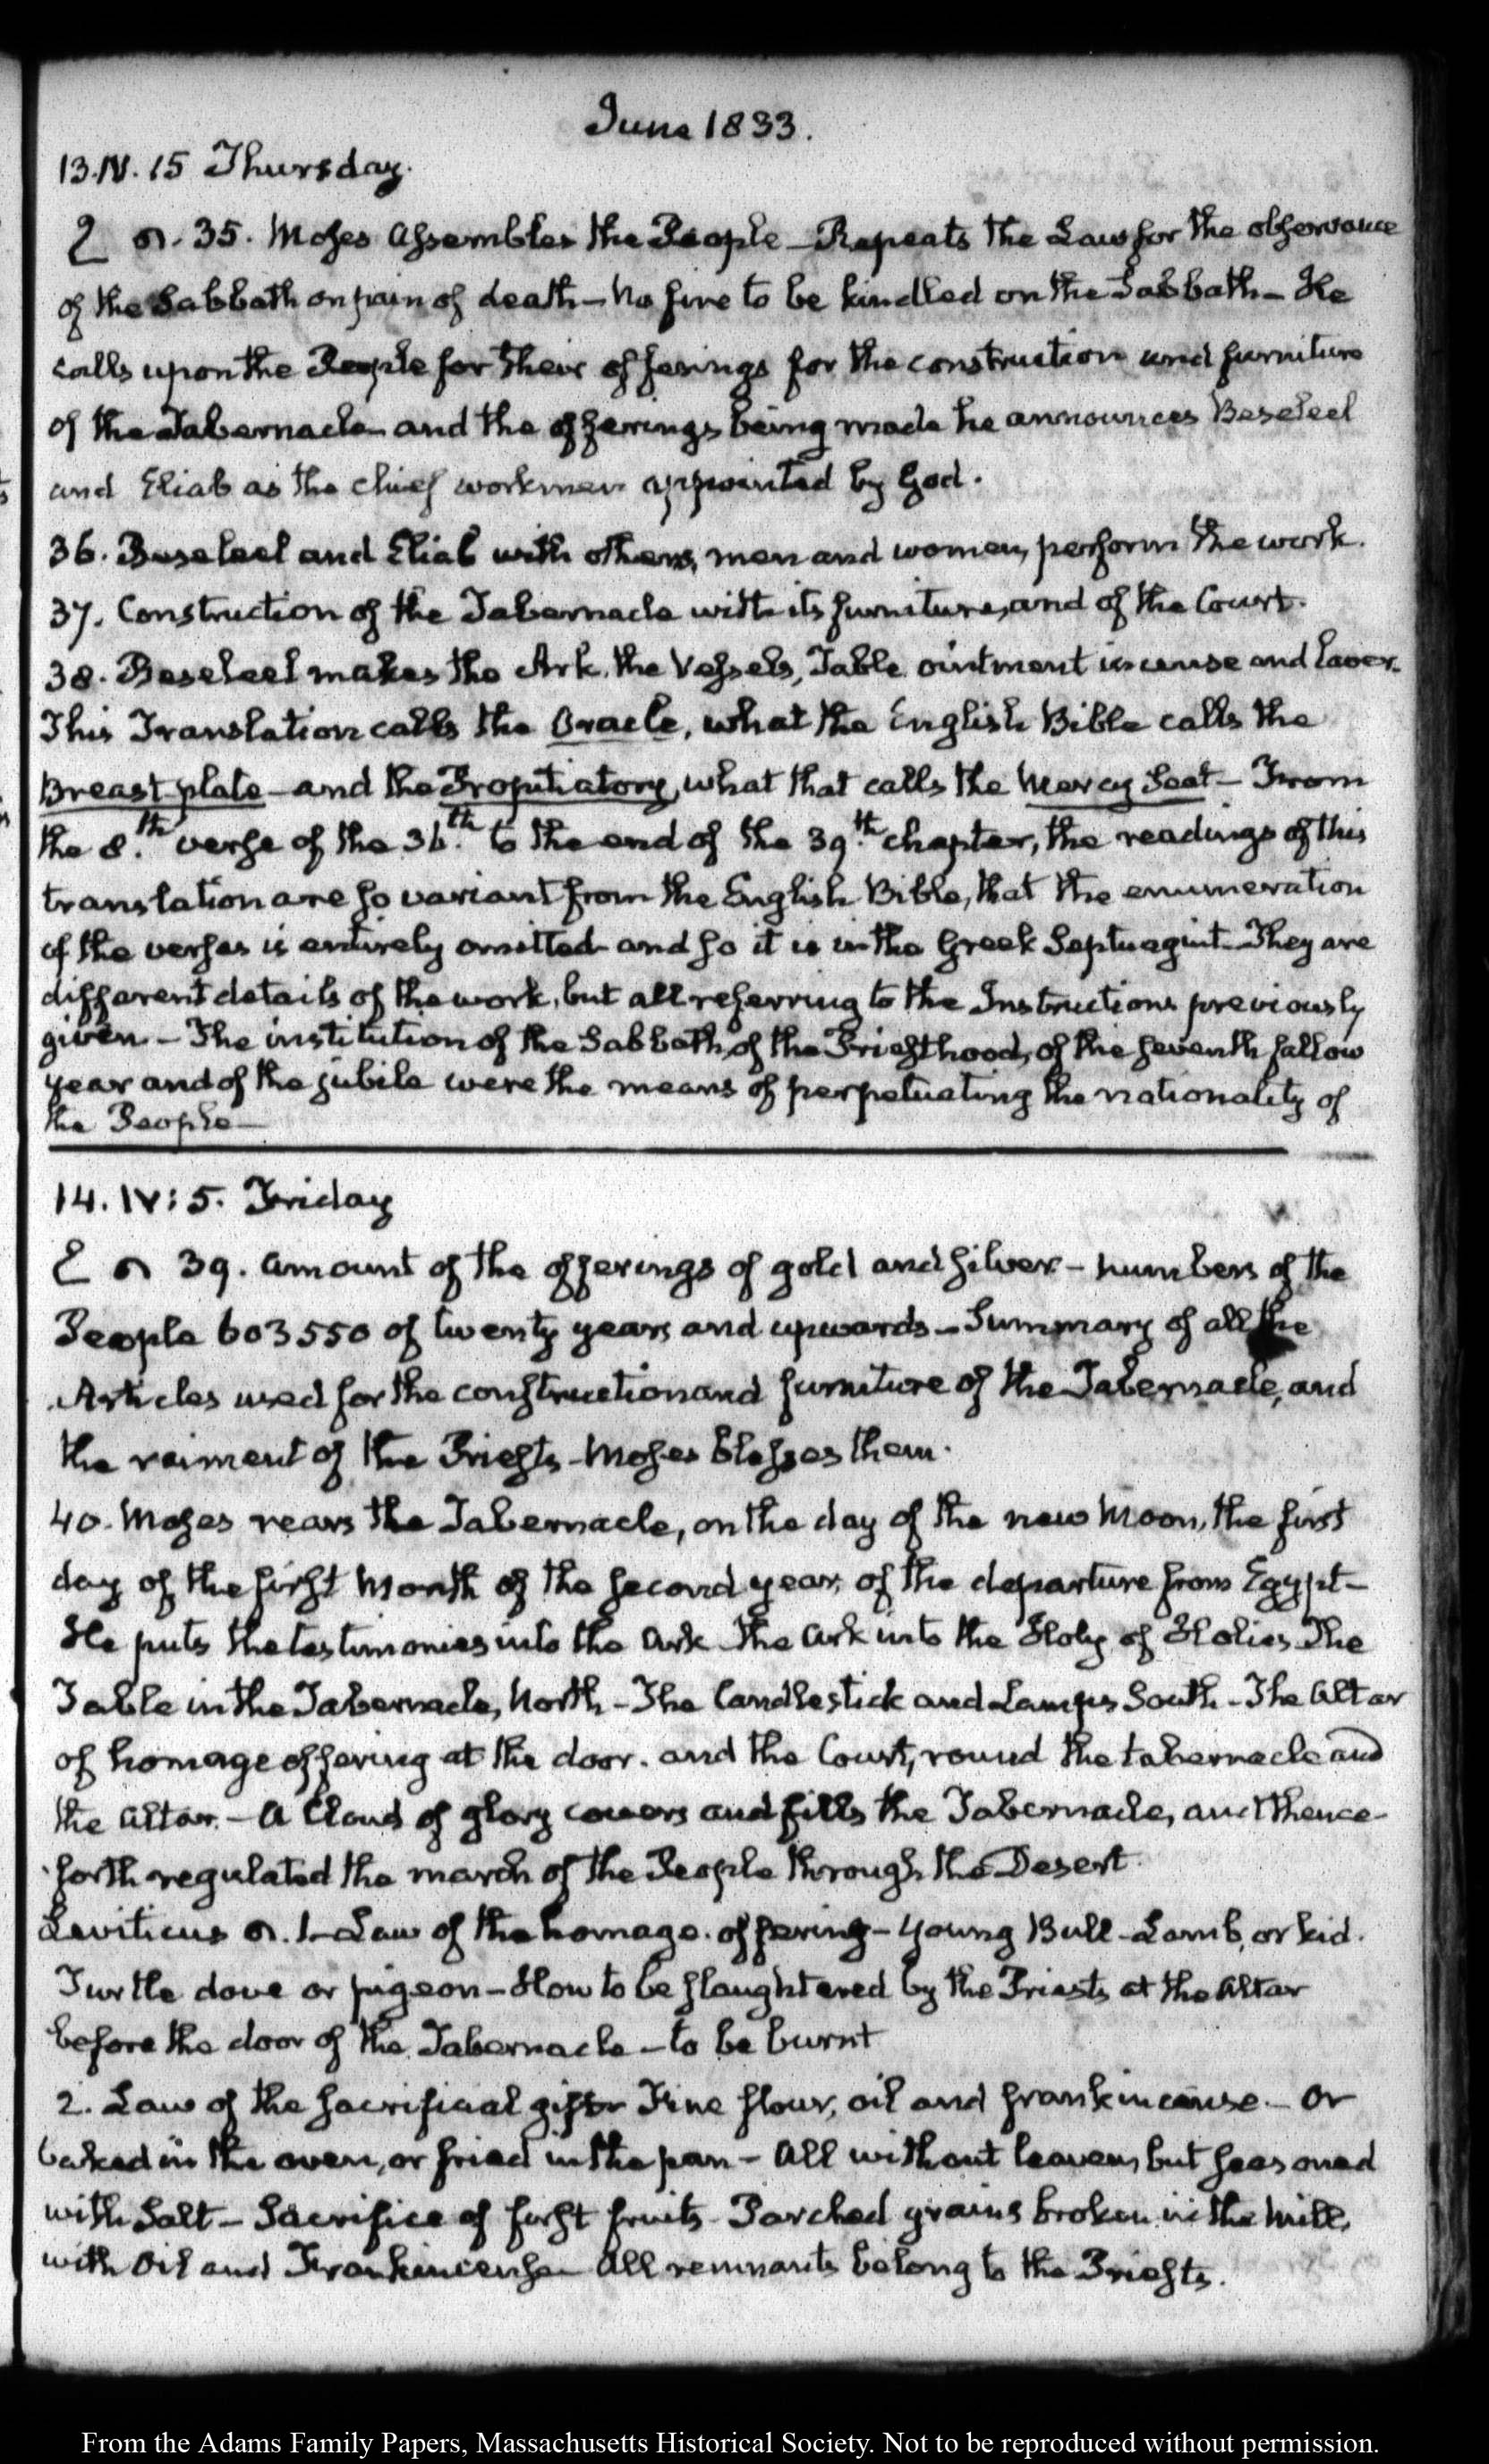 June 1833.
13. IV. 15 Thursday.
35. Moses Assembles the People — Repeats the Law for the observance
of the Sabbath on pain of death — No fire to be kindled on the Sabbath — He
calls upon the People for their offerings for the construction and furniture
of the Tabernacle and the offerings being made he announces Beseleel
and Eliab as the chief workmen appointed by God.
36. Beseleel and Eliab with others, men and women, perform the work.
37. Construction of the Tabernacle with its furniture, and of the Court.
38. Beseleel makes the Ark, the Vessels, Table ointment incense and laver.
This Translation calls the Oracle, what the English Bible calls the
Breast plate — and the Propitiatory, what that calls the Mercy Seat — From
the 8.th verse of the 36.th to the end of the 39.th chapter, the readings of this
translation are so variant from the English Bible, that the enumeration
of the verses is entirely omitted and so it is in the Greek Septuagint — They are
different details of the work, but all referring to the Instructions previously
given — The institution of the Sabbath, of the Priesthood, of the seventh fallow
year and of the jubile were the means of perpetuating the nationality of
the People —
14. IV: 5. Friday
39. Amount of the offerings of gold and silver — numbers of the
People 603550 of twenty years and upwards — Summary of all the
Articles used for the construction and furniture of the Tabernacle, and
the raiment of the Priests — Moses blesses them.
40. Moses rears the Tabernacle, on the day of the new Moon, the first
day of the first Month of the second year, of the departure from Egypt —
He puts the testimonies into the Ark the Ark into the Holy of Holies The
Table in the Tabernacle, North — The Candlestick and Lamps South — The Altar
of homage offering at the door. and the Court, round the tabernacle and
the Altar. — A Cloud of glory covers and fills the Tabernacle, and thence-
forth regulated the march of the People through the Desert.
Leviticus 1 — Law of the homage offering — Young Bull — Lamb, or kid.
Turtle dove or pigeon — How to be slaughtered by the Priests at the Altar
before the door of the Tabernacle — to be burnt
2. Law of the sacrificial gift Fine flour, oil and frankincense. — Or
baked in the oven, or fried in the pan — All without leaven, but seasoned
with Salt — Sacrifice of first fruits — Parched grains broken in the Mill,
with Oil and Frankincense — All remnants belong to the Priests.
From the Adams Family Papers, Massachusetts Historical Society. Not to be reproduced without permission.